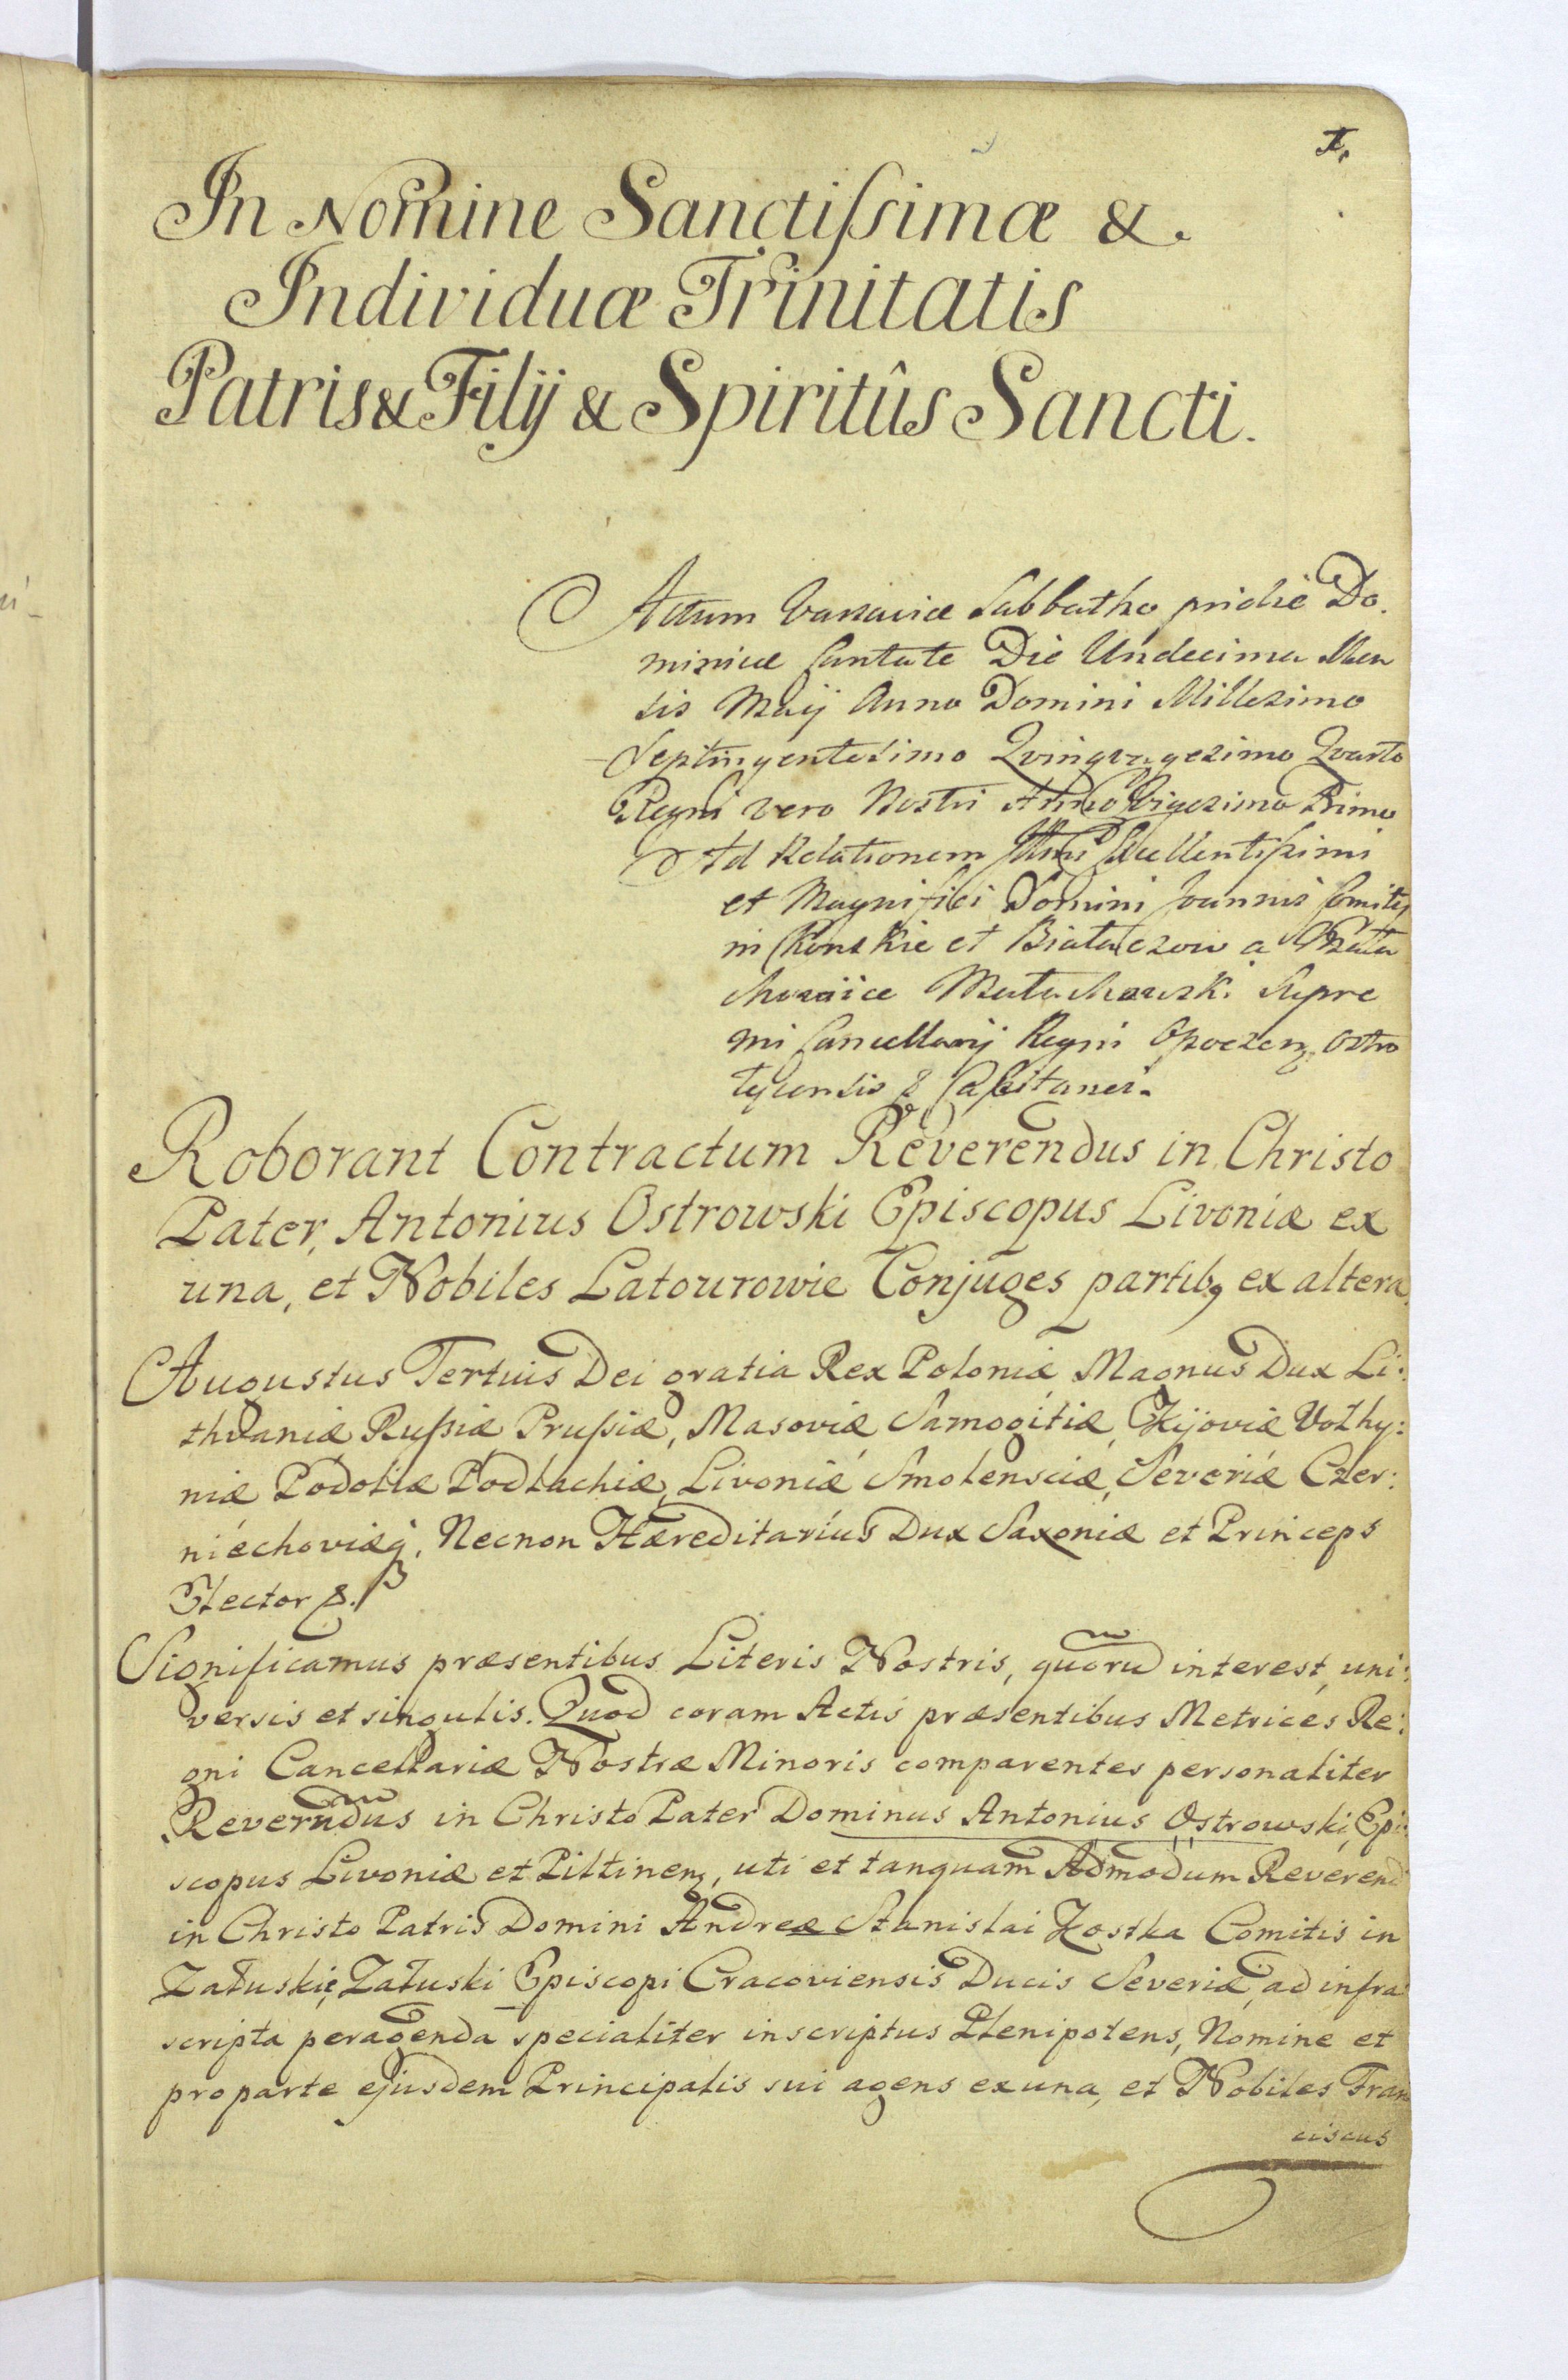 1.
In Nomine Sanctiſsimæ &.
Individuæ Trinitatis
Patris & Filij & Spiritûs Sancti.
Actum Varsaviæ Sabbatho pridie Do.
minicæ Cantate Die Undecima Men
sis Maij Anno Domini Millesimo
Septingentesimo Qvinqvagesimo Qvarto
Regni vero Nostri Anno Vigesimo Primo
Ad Relationem Illmi Excellentiſsimi
et Magnifici Domini Joannis Comitis
in Konskie et Białaczow a Mała
chowice Małachowski Supre
mi Cancellarij Regni Opoczen, Ostro
lycensis & Capitanei.
Roborant Contractum Reverendus in Christo
Pater, Antonius Ostrowski Episcopus Livoniæ ex
una, et Nobiles Latourowie Conjuges partibꝫ ex altera.
Augustus Tertius Dei gratia Rex Poloniæ Magnus Dux Li:
thvaniæ Ruſsiæ Pruſsiæ, Masoviæ Samogitiæ, Kijoviæ Volhy:
niæ Podoliæ Podlachiæ, Livoniæ Smolensciæ, Severiæ Czer:
niechoviæq, Necnon Hæreditarius Dux Saxoniæ et Princeps
Elector &.
Significamus præsentibus Literis Nostris, quorũ interest, uni:
versis et singulis. Quod coram Actis præsentibus Metrices Re:
gni Cancellariæ Nostræ Minoris comparentes personaliter
Reverñdus in Christo Pater Dominus Antonius Ostrowski, Epi:
scopus Livoniæ et Piltinenꝫ, uti et tanquam Admodum Reverend
in Christo Patris Domini Andreæ Stanislai Kostka Comitis in
Załuskie, Załuski Episcopi Cracoviensis Ducis Severiæ, ad infra
scripta peragenda specialiter inscriptus Plenipotens, Nomine et
pro parte ejusdem Principalis sui agens ex una, et Nobiles Fran
ciscus